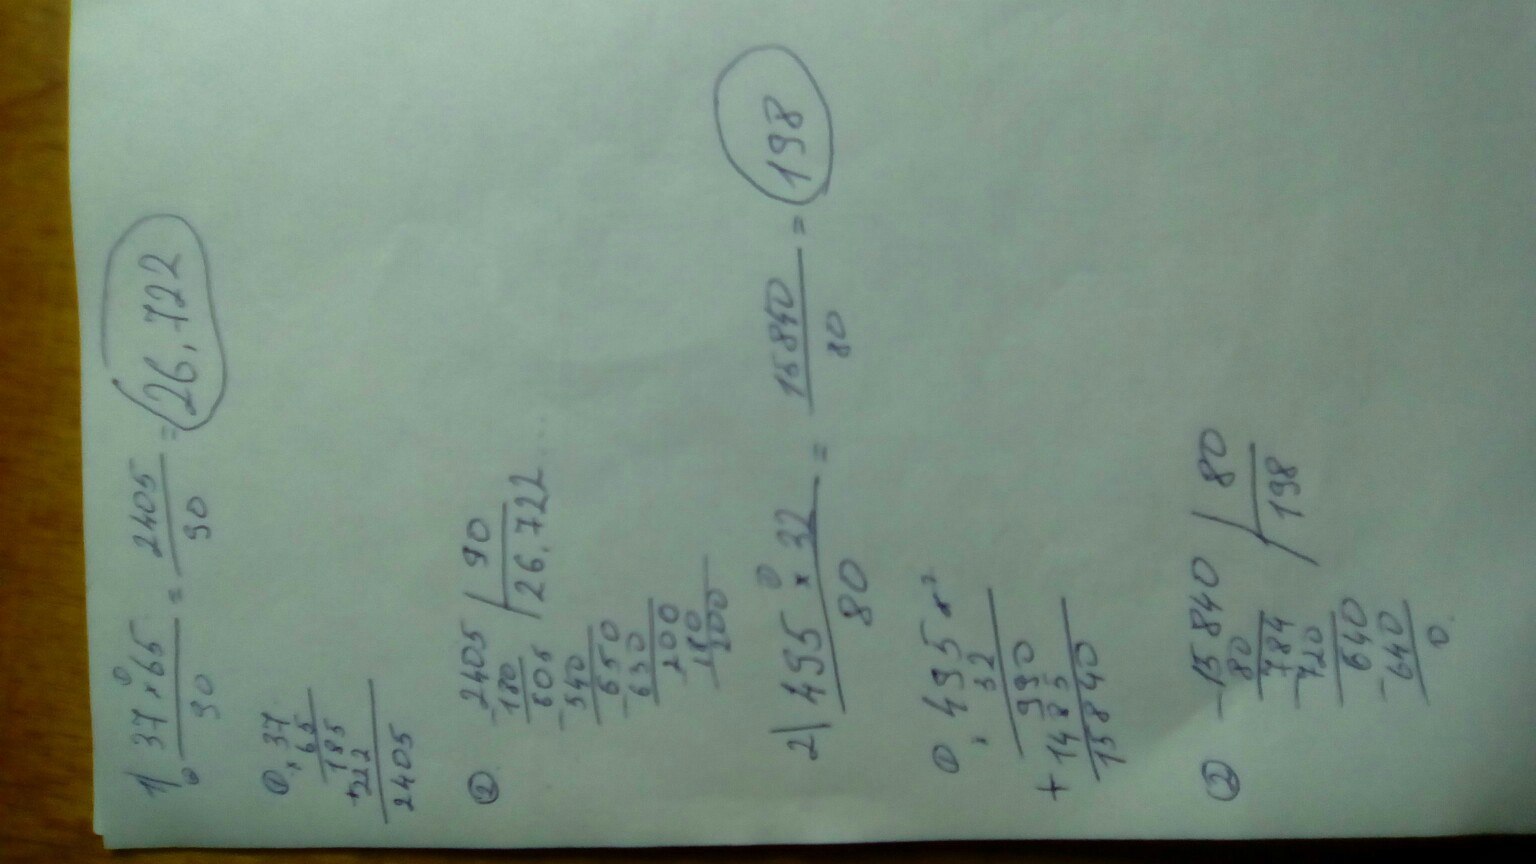 1) 37 × 65 / 90 = 2405 / 90 = 26,722
① × 37
65
185
+ 222
2405
② - 2405 | 90
180 | 26,722...
605
- 540
650
- 630
200
- 180
200
2) 495 × 32 / 80 = 15840 / 80 = 198
① × 495
32
990
+ 1485
15840
② - 15840 | 80
80 | 198
784
- 720
640
- 640
0